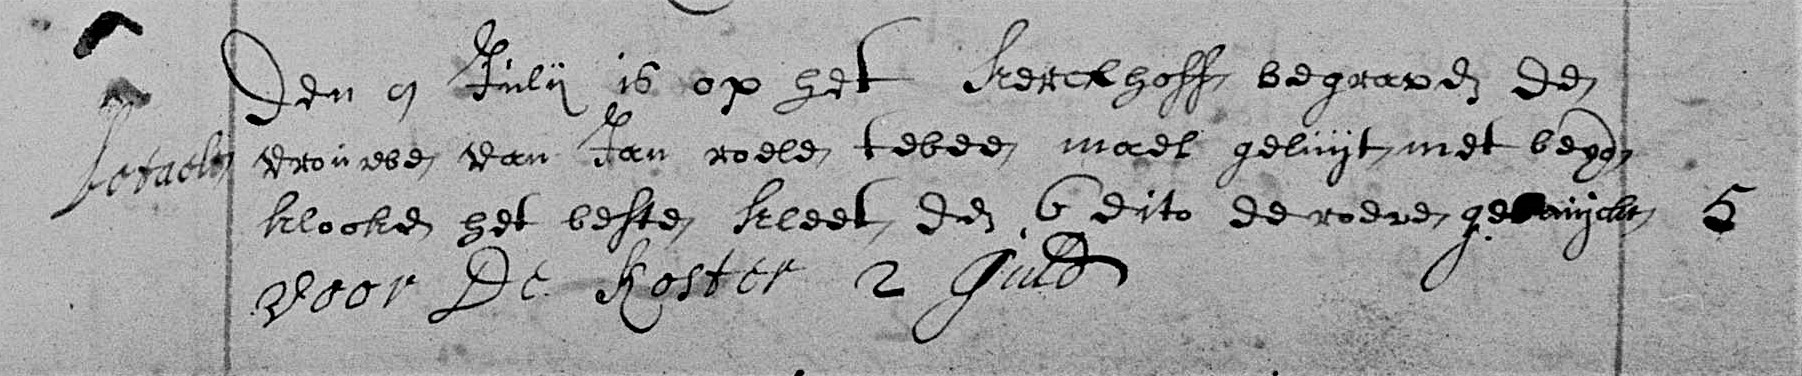 Den 9 Julij is op het kerckhoff begraven de
betaelt vrouwe van Jan roele twee mael geluijt met beyde
klocken het beste kleet den 6 dito de roeve gebruijckt 5
voor De Koster 2 guld